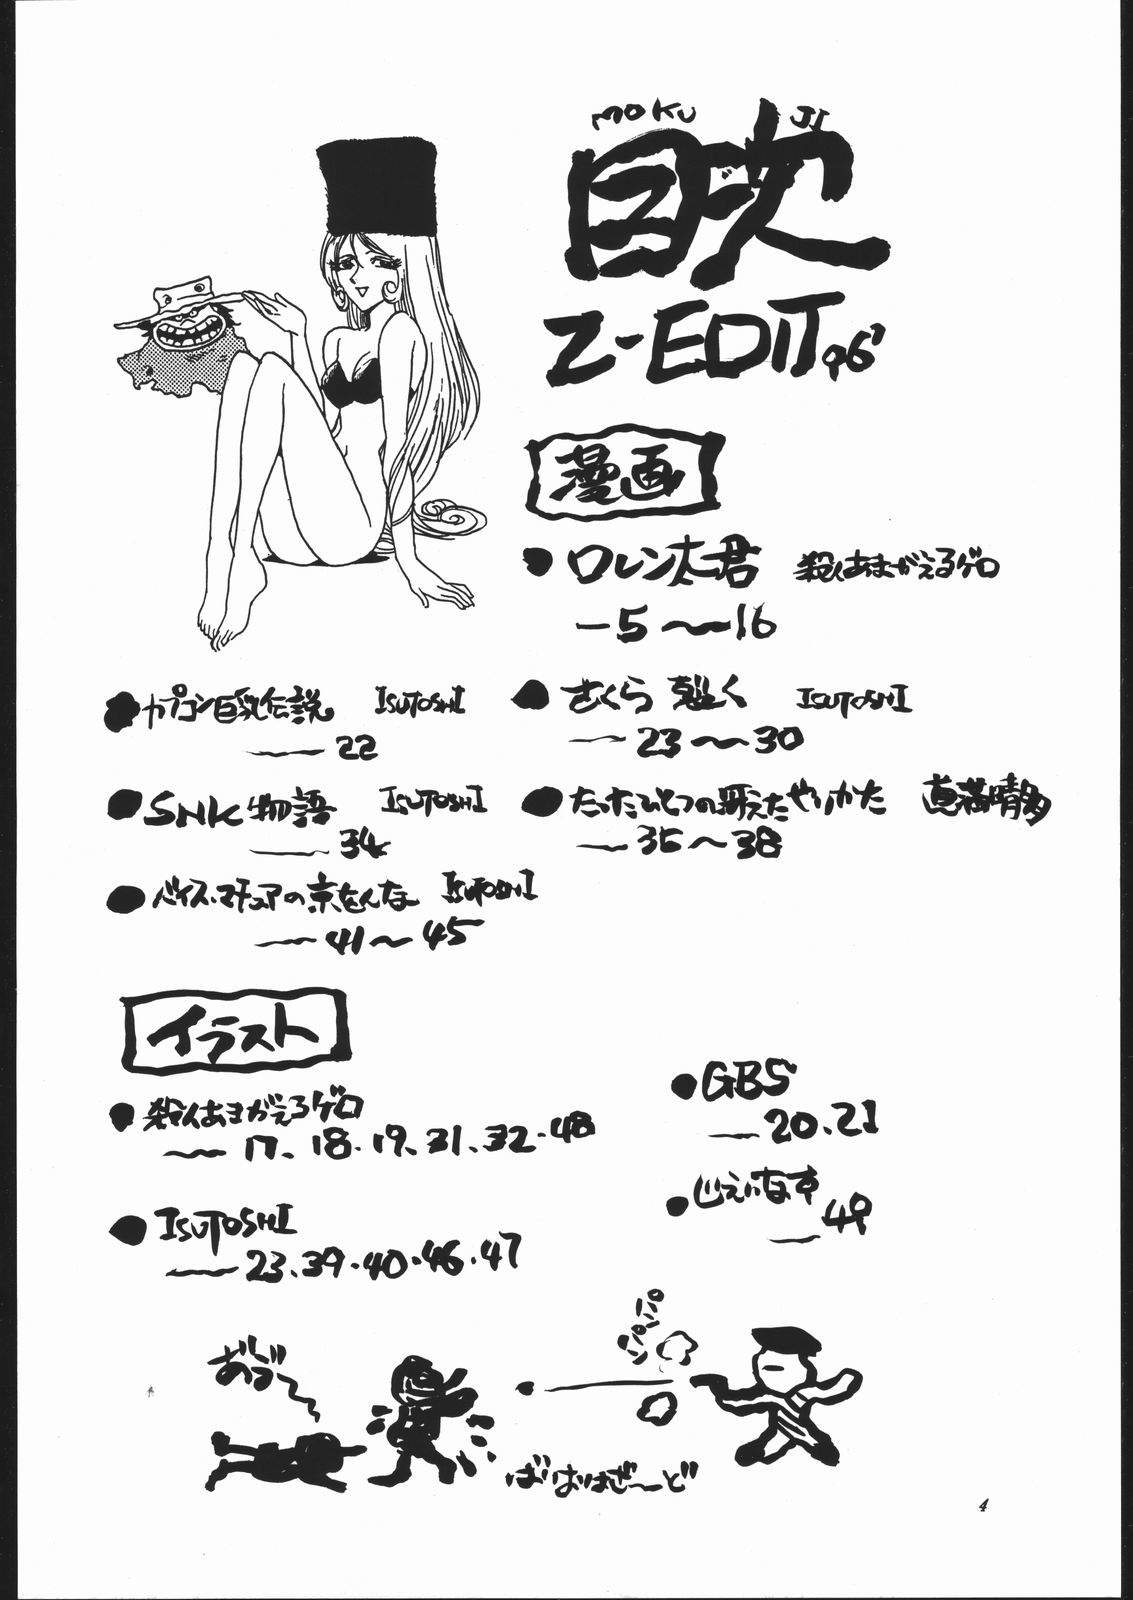 MOKU JI
目次
Z-EDIT 96'
漫画
●ロレン太君 殺人あまがえるゲロ
—5〜16
●さくら 襲く ISUTOSHI
—23〜30
●たったひとつの冴えたやりかた 真満晴多
—35〜38
●カプコン巨乳伝説 ISUTOSHI
—22
●SNK物語 ISUTOSHI
—34
●バイス・マチュアの京をんな ISUTOSHI
—41〜45
イラスト
●殺人あまがえるゲロ
—17、18・19、31、32・48
●ISUTOSHI
—23、39・40・46・47
●GBS
—20、21
●じえいなす
—49
あぶ〜
パパパン
ばいおはざーど
4